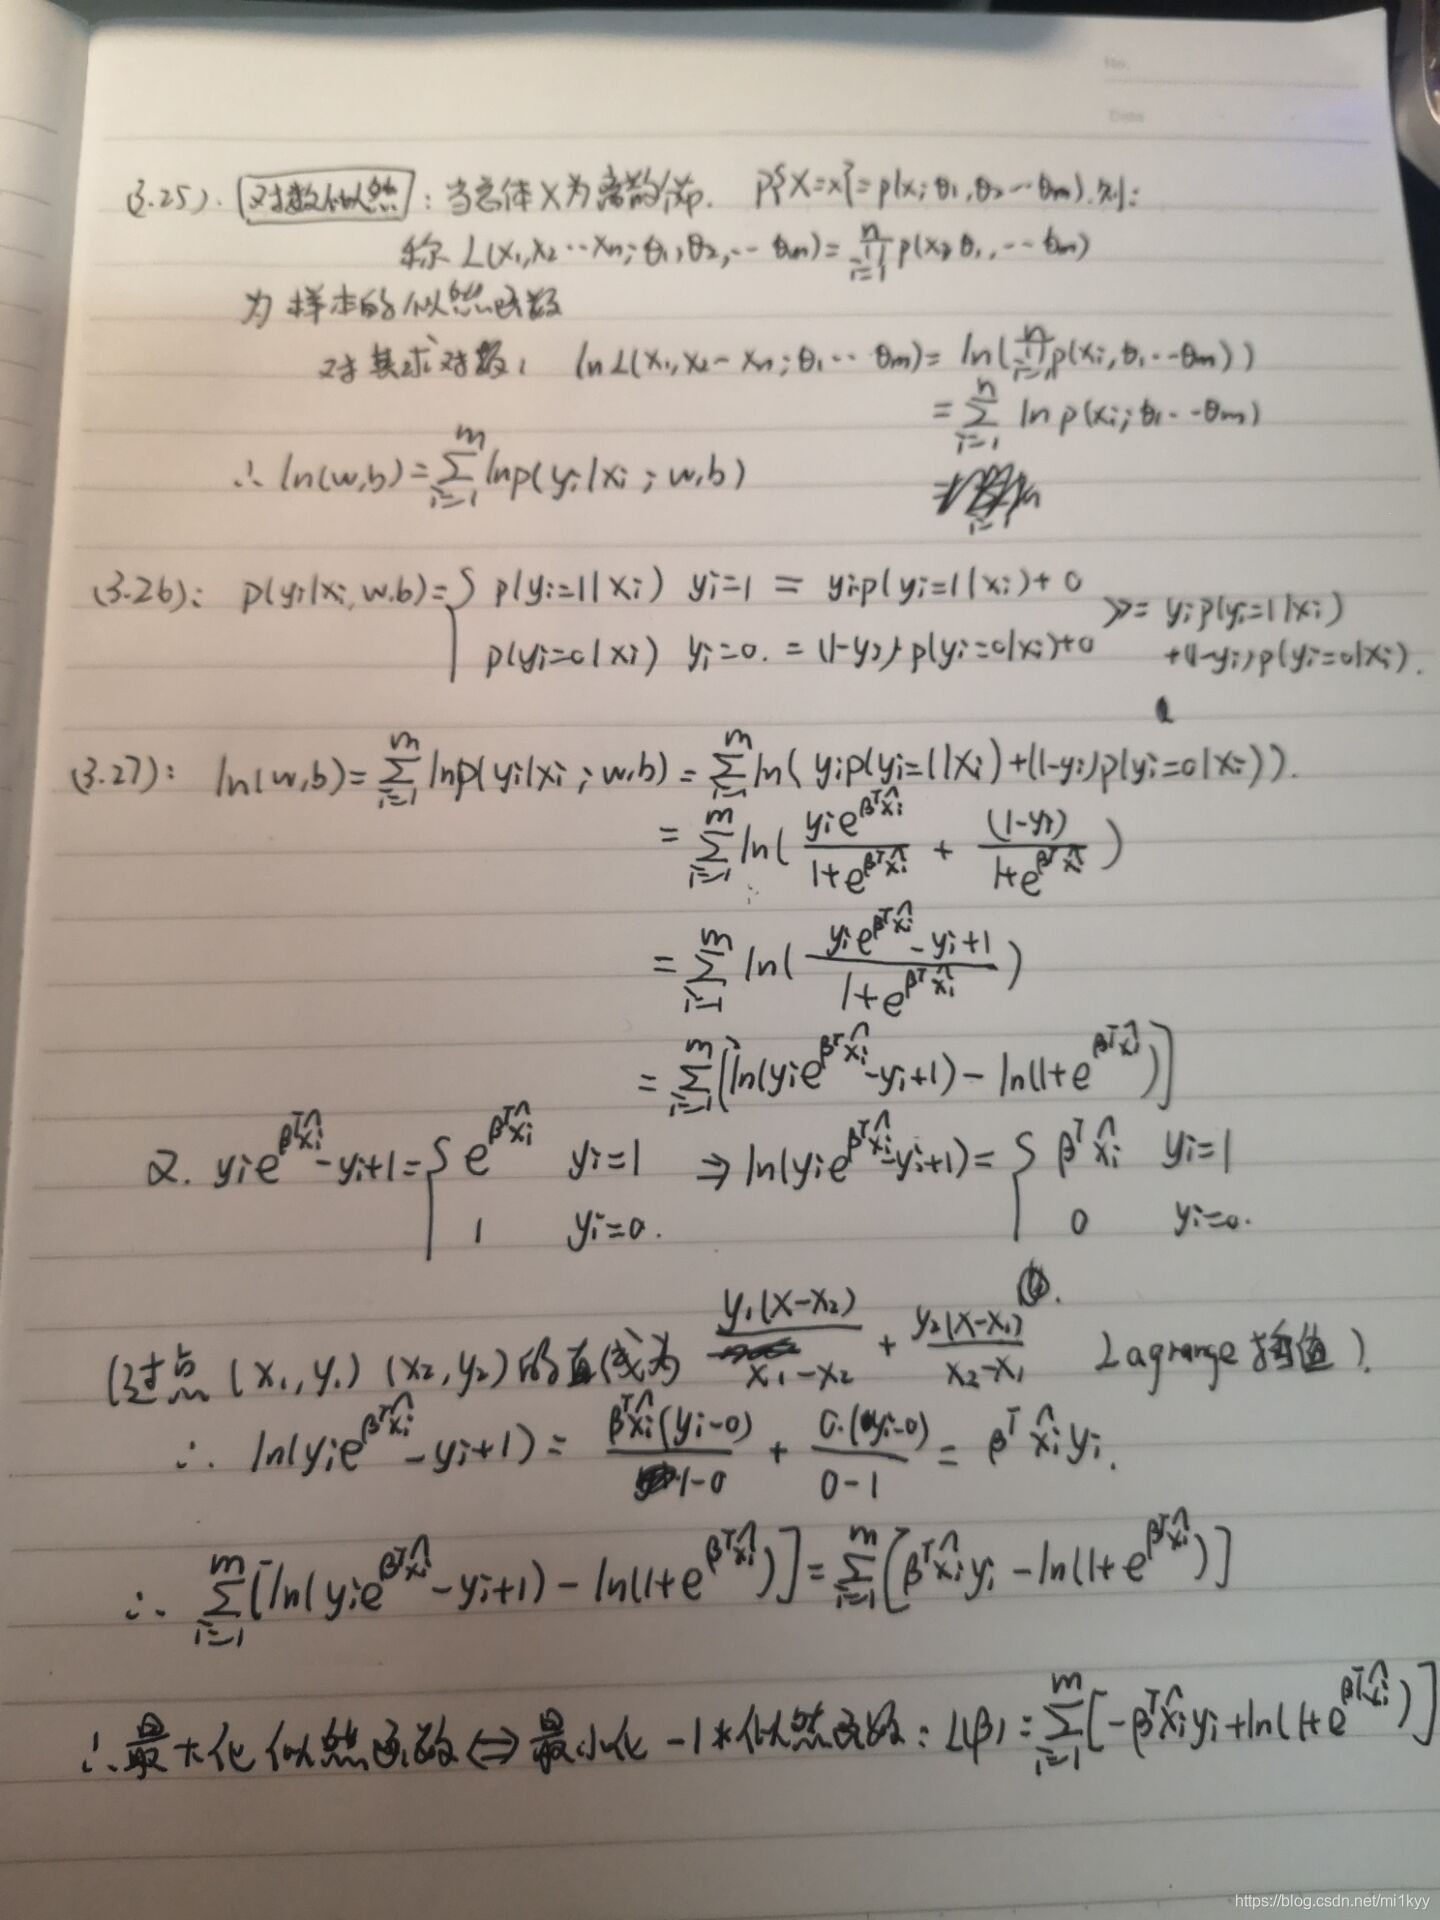 No.
Date
(3.25). 对数似然: 当总体X为离散分布. P{X=x}=p(x;θ₁,θ₂…θm).则:
称 L(x₁,x₂…xn;θ₁,θ₂,…θm)=∏ᵢ₌₁ⁿ p(xᵢ,θ₁,…θm)
为样本的似然函数
对其求对数: lnL(x₁,x₂-xn;θ₁…θm)= ln(∏ᵢ₌₁ⁿ p(xᵢ,θ₁…θm))
= ∑ᵢ₌₁ⁿ ln p(xᵢ;θ₁…θm)
∴ ln(w,b)=∑ᵢ₌₁ᵐ lnp(yᵢ|xᵢ;w,b)
(3.26): p(yᵢ|xᵢ,w,b)={ p(yᵢ=1|xᵢ) yᵢ=1 = yᵢp(yᵢ=1|xᵢ)+0 ⟩= yᵢp(yᵢ=1|xᵢ)
p(yᵢ=0|xᵢ) yᵢ=0. = (1-yᵢ)p(yᵢ=0|xᵢ)+0 +(1-yᵢ)p(yᵢ=0|xᵢ).
(3.27): ln(w,b)=∑ᵢ₌₁ᵐ lnp(yᵢ|xᵢ;w,b)=∑ᵢ₌₁ᵐ ln(yᵢp(yᵢ=1|xᵢ)+(1-yᵢ)p(yᵢ=0|xᵢ)).
= ∑ᵢ₌₁ᵐ ln( yᵢe^(βᵀx̂ᵢ)/(1+e^(βᵀx̂ᵢ)) + (1-yᵢ)/(1+e^(βᵀx̂ᵢ)) )
= ∑ᵢ₌₁ᵐ ln( (yᵢe^(βᵀx̂ᵢ)-yᵢ+1)/(1+e^(βᵀx̂ᵢ)) )
= ∑ᵢ₌₁ᵐ [ln(yᵢe^(βᵀx̂ᵢ)-yᵢ+1) - ln(1+e^(βᵀx̂ᵢ))]
又. yᵢe^(βᵀx̂ᵢ)-yᵢ+1={ e^(βᵀx̂ᵢ) yᵢ=1 ⇒ ln(yᵢe^(βᵀx̂ᵢ)-yᵢ+1)={ βᵀx̂ᵢ yᵢ=1
1 yᵢ=0. 0 yᵢ=0.
(过点(x₁,y₁)(x₂,y₂)的直线为 y₁(x-x₂)/(x₁-x₂) + y₂(x-x₁)/(x₂-x₁) Lagrange插值).
∴ ln(yᵢe^(βᵀx̂ᵢ)-yᵢ+1)= βᵀx̂ᵢ(yᵢ-0)/(1-0) + 0·(yᵢ-0)/(0-1) = βᵀx̂ᵢyᵢ.
∴ ∑ᵢ₌₁ᵐ [ln(yᵢe^(βᵀx̂ᵢ)-yᵢ+1)-ln(1+e^(βᵀx̂ᵢ))]=∑ᵢ₌₁ᵐ [βᵀx̂ᵢyᵢ-ln(1+e^(βᵀx̂ᵢ))]
∴最大化似然函数⇔最小化 -1*似然函数: L(β)=∑ᵢ₌₁ᵐ [-βᵀx̂ᵢyᵢ+ln(1+e^(βᵀx̂ᵢ))]
https://blog.csdn.net/mi1kyy